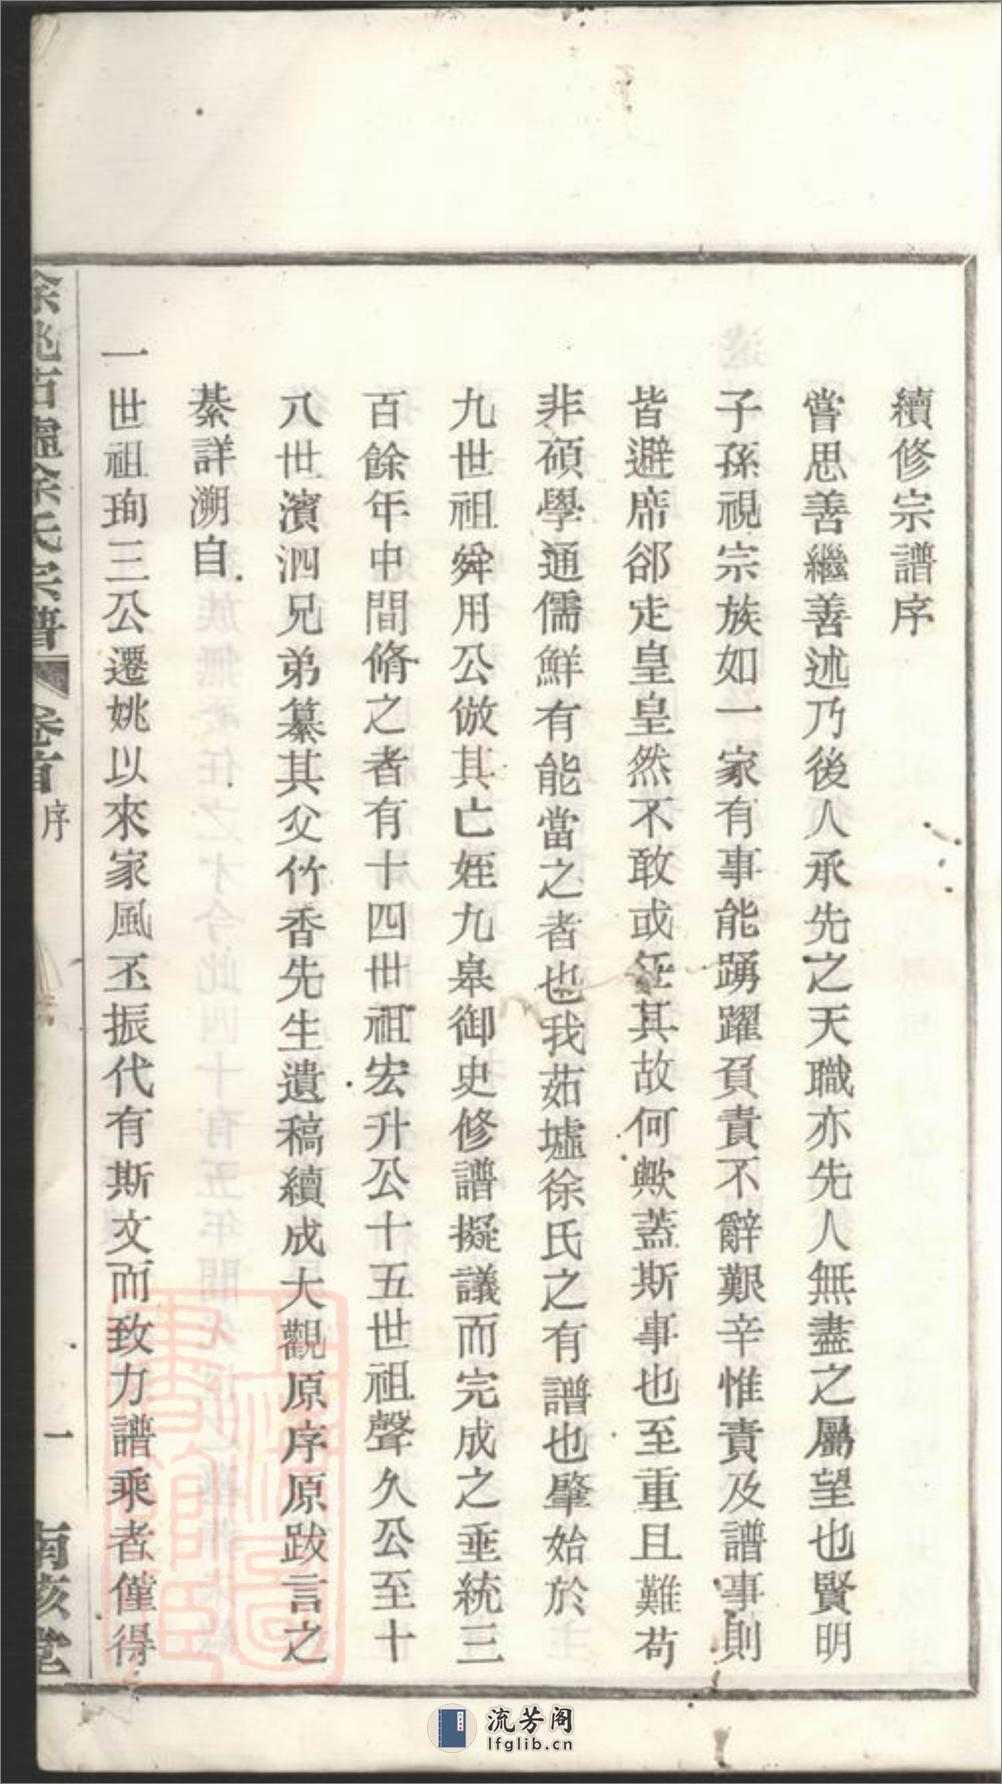 續修宗譜序
嘗思善繼善述乃後人承先之天職亦先人無盡之屬望也賢明
子孫視宗族如一家有事能踴躍負責不辭艱辛惟責及譜事則
皆避席郤走皇皇然不敢或任其故何歟蓋斯事也至重且難苟
非碩學通儒鮮有能當之者也我茹墟徐氏之有譜也肇始於
九世祖舜用公倣其亡姪九皋御史修譜擬議而完成之垂統三
百餘年中間脩之者有十四世祖宏升公十五世祖聲久公至十
八世濱泗兄弟纂其父竹香先生遺稿續成大觀原序原跋言之
綦詳溯自
一世祖珣三公遷姚以來家風丕振代有斯文而致力譜乘者僅得
徐氏宗譜 卷首 序 一 堂
流芳阁
lfglib.cn